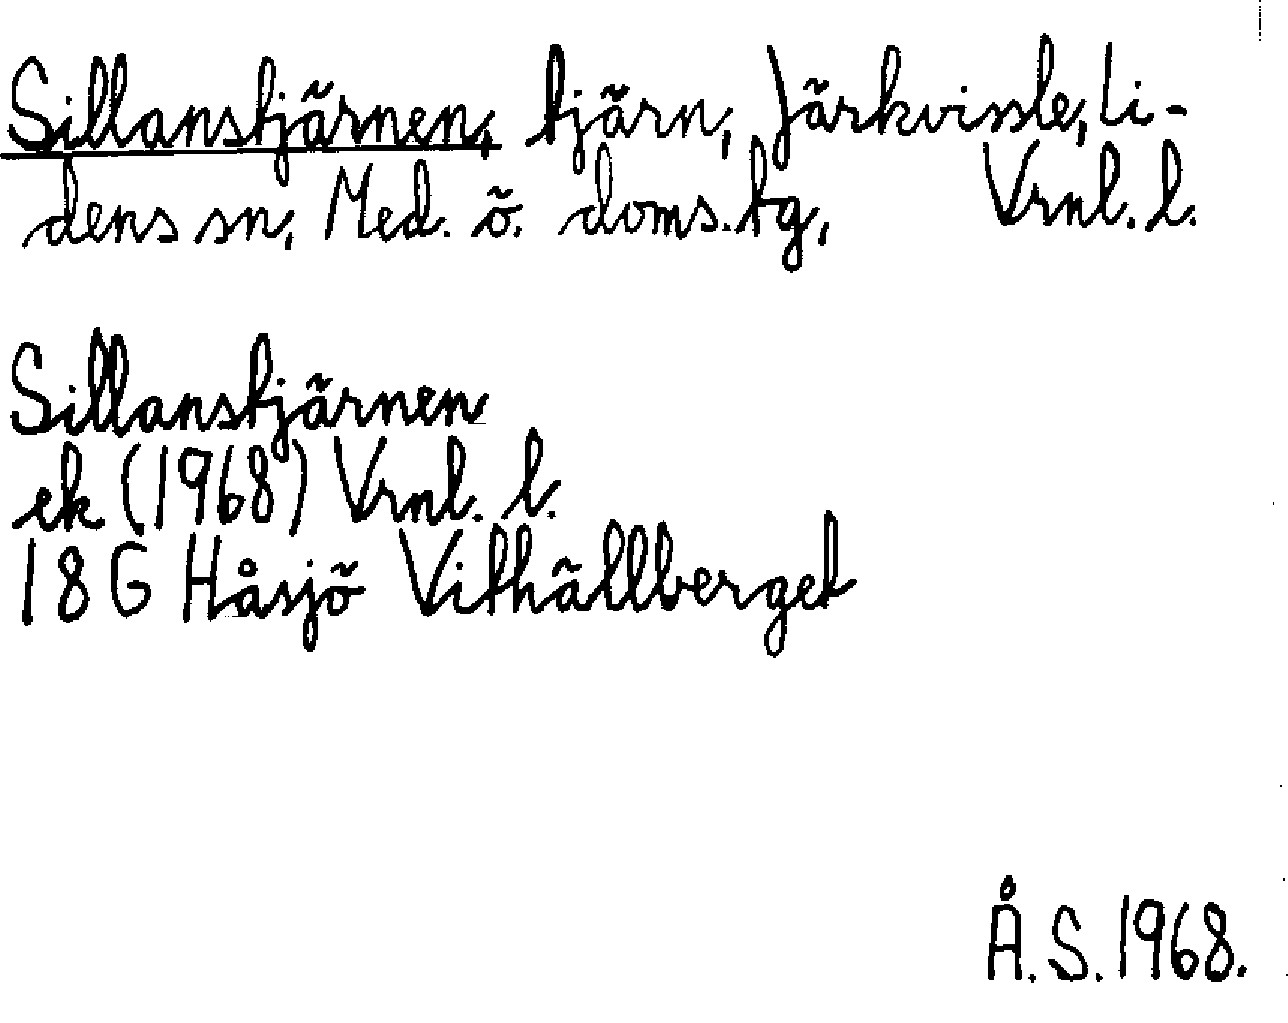 Sillanstjärnen, tjärn, Järkvissle, Li-
dens sn, Med. ö. doms.tg, Vrnl. l.
Sillanstjärnen
ek (1968) Vrnl. l.
18 G Håsjö Vithällberget
Å.S. 1968.